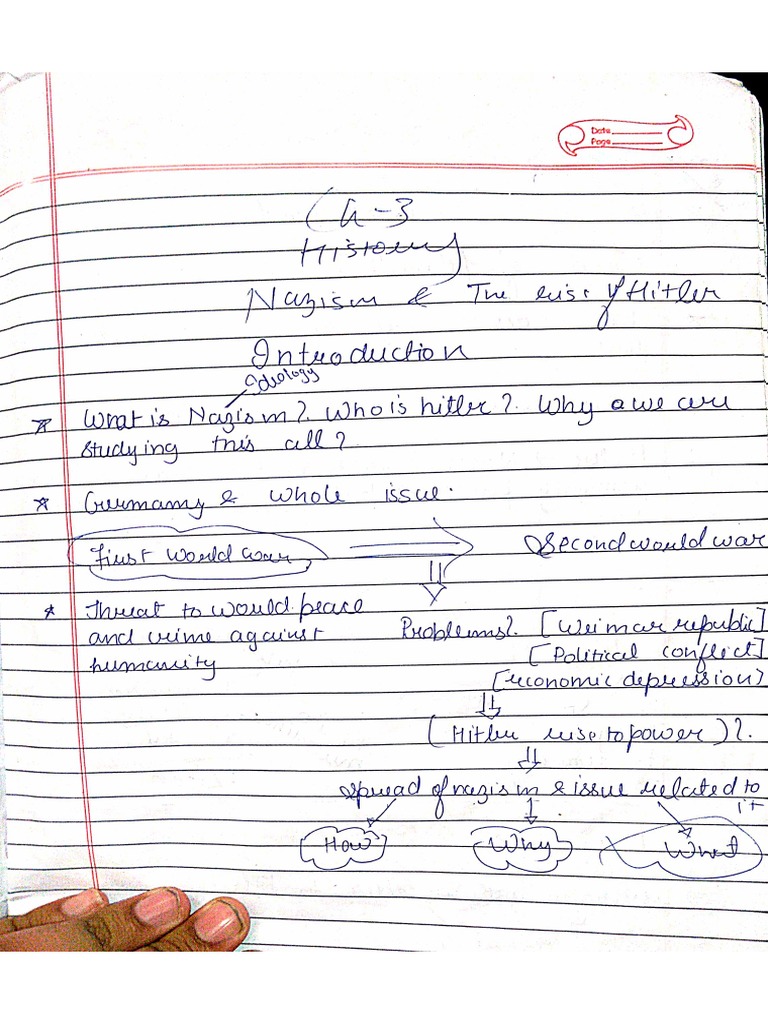 Date
Page
Ch-3
History
Nazism & The rise of Hitler
Introduction
Ideology
What is Nazism? Who is hitler? Why a we are
studying this all?
Germany & whole issue.
First world war ⇒ Second world war
⇓
Threat to world peace
and crime against
humanity
Problems? [Weimar republic]
[Political conflict]
[economic depression]
⇓
(Hitler rise to power)?
⇓
spread of nazism & issue related to
it
How Why What